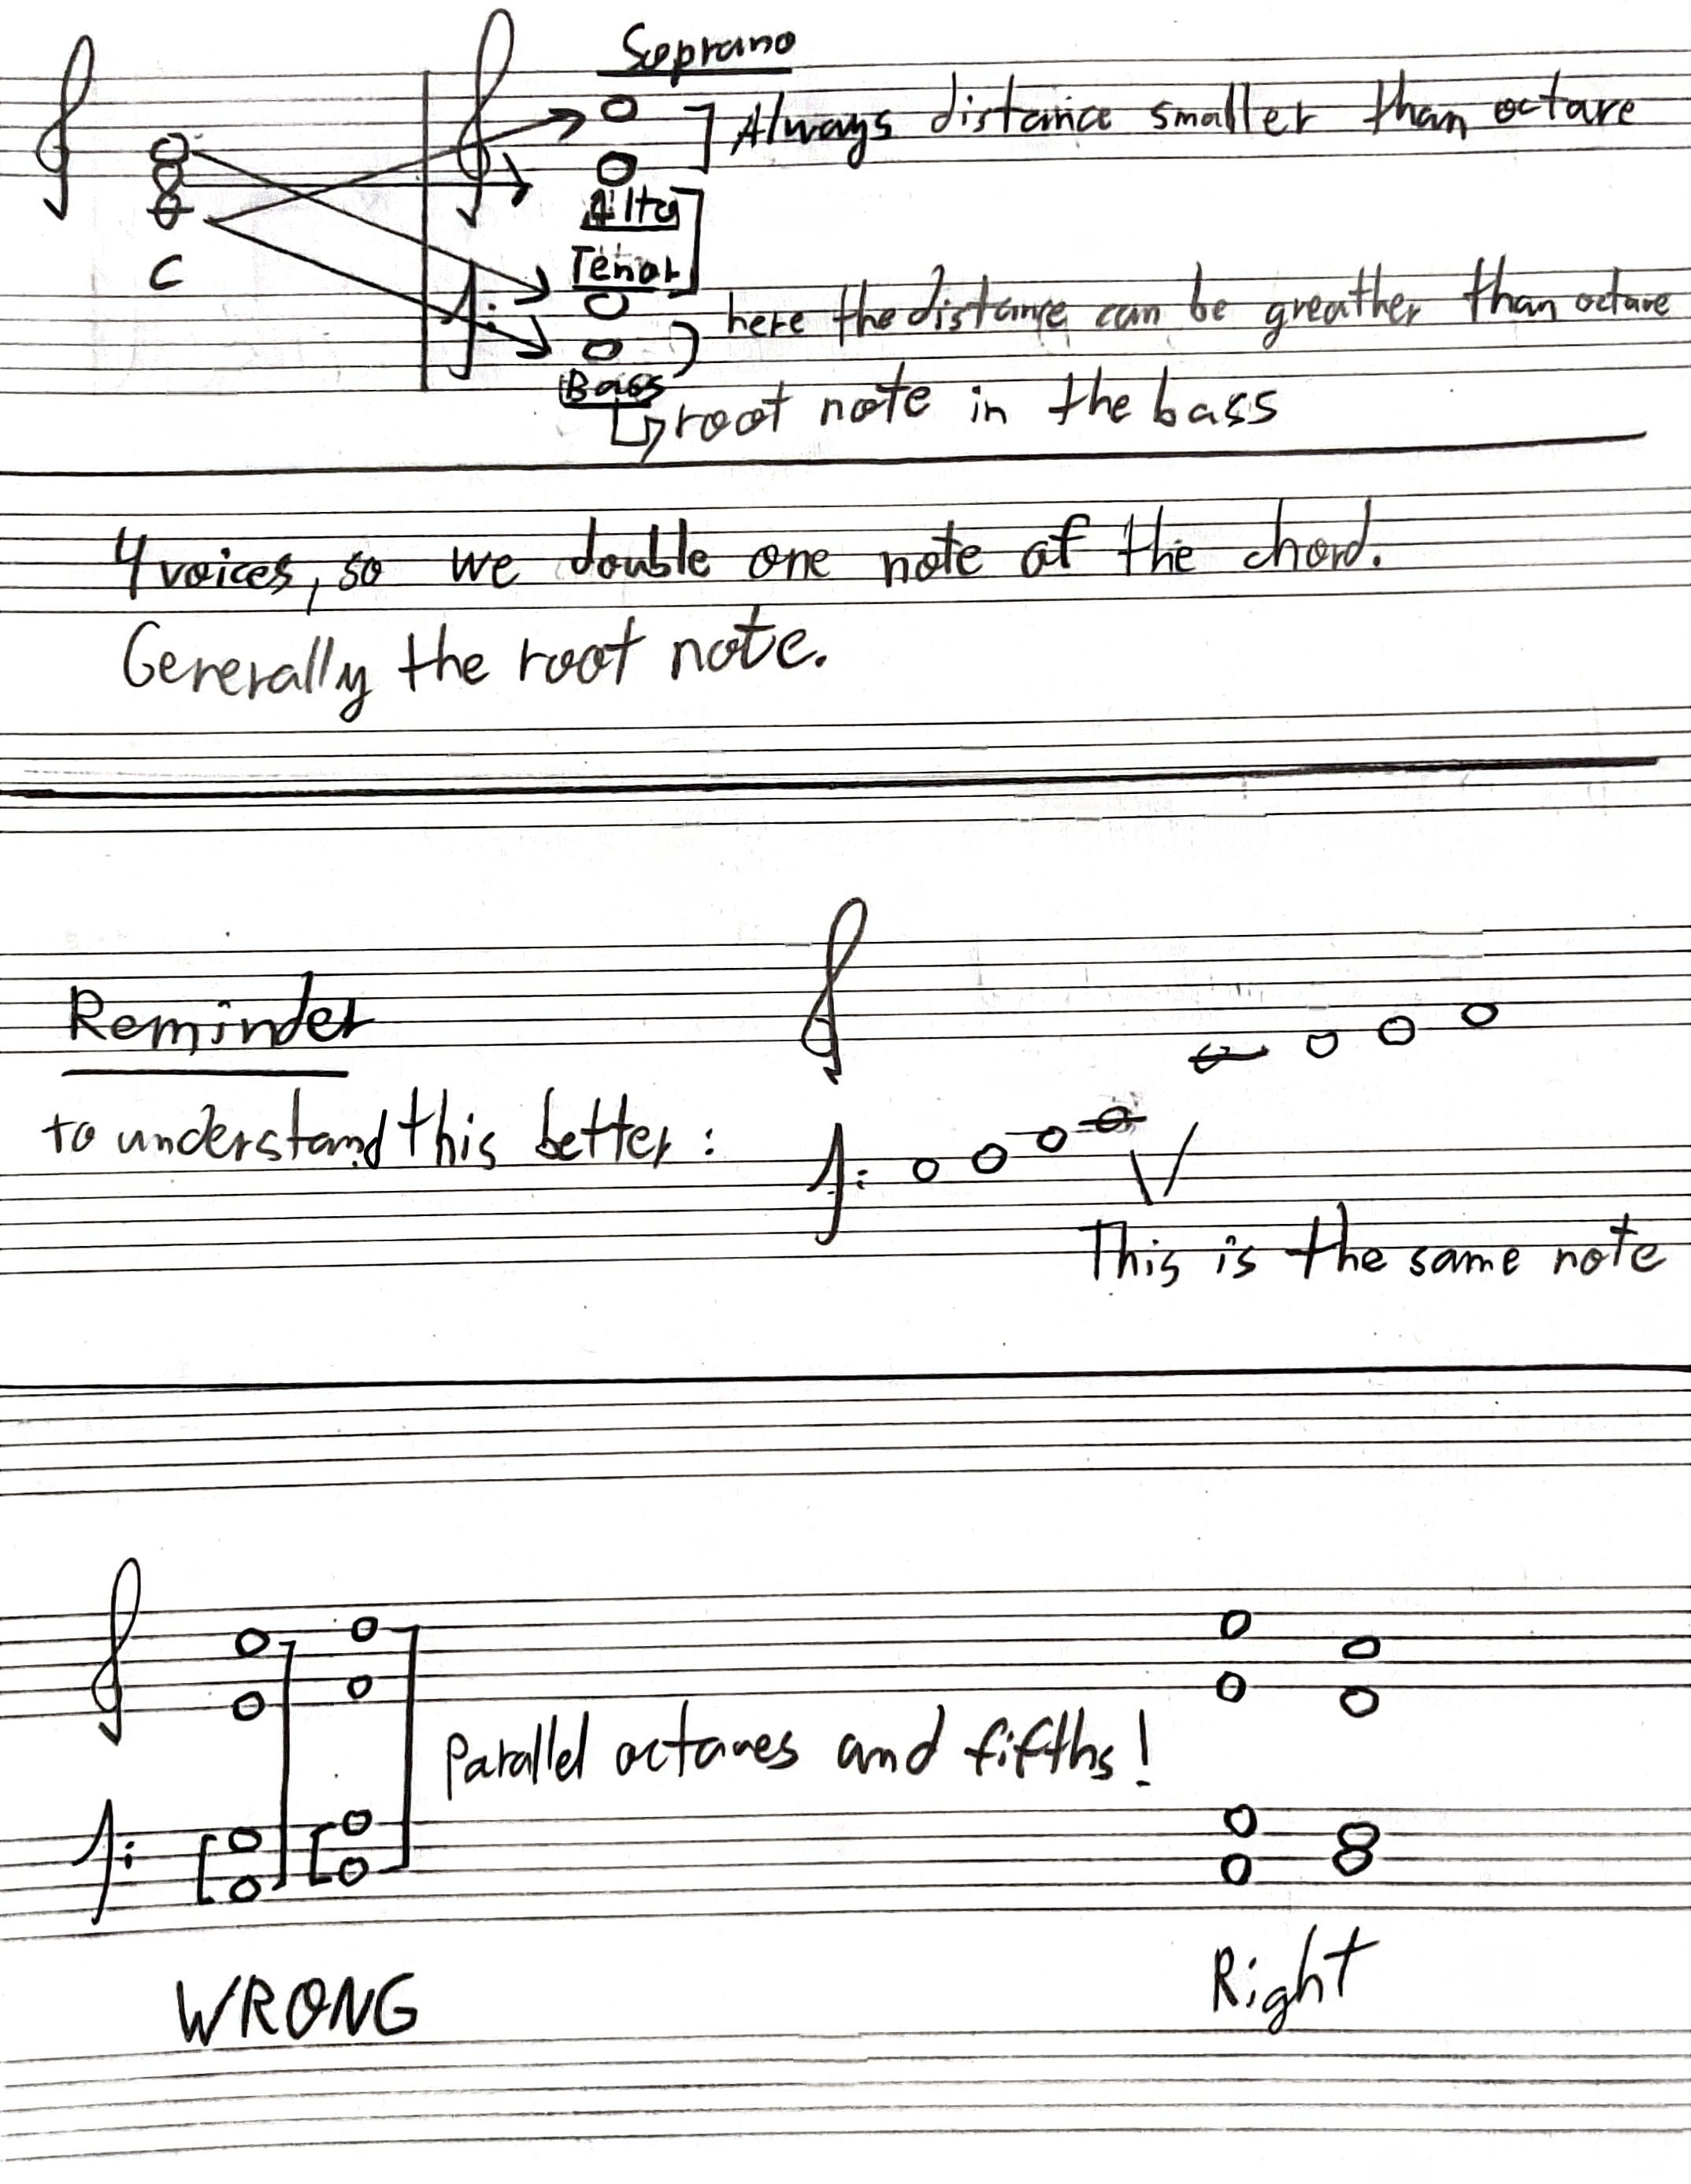 Soprano
Always distance smaller than octave
Alto
Tenor
C
here the distance can be greather than octave
Bass
root note in the bass
4 voices, so we double one note of the chord.
Generally the root note.
Reminder
to understand this better:
This is the same note
Parallel octaves and fifths!
WRONG
Right